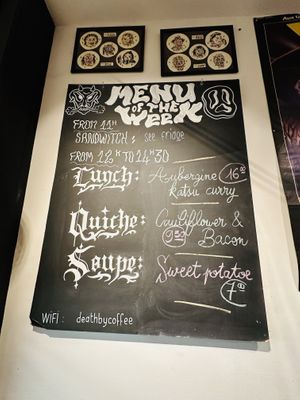 MENU
OF THE
WEEK
FROM 11H
SANDWITCH: see fridge
FROM 12H TO 14H30
Lunch: Aubergine 16.00
Katsu curry
Quiche: Cauliflower &
9.50 Bacon
Soupe: Sweet potatoe
7.00
WIFI: deathbycoffee